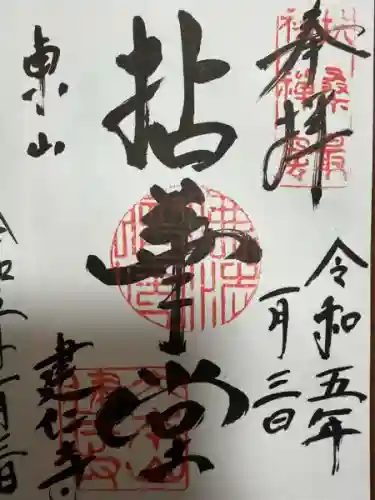 奉拝
扶桑最
初禅窟
令和五年
一月三日
拈華堂
東山
建仁寺
令和五年一月三日